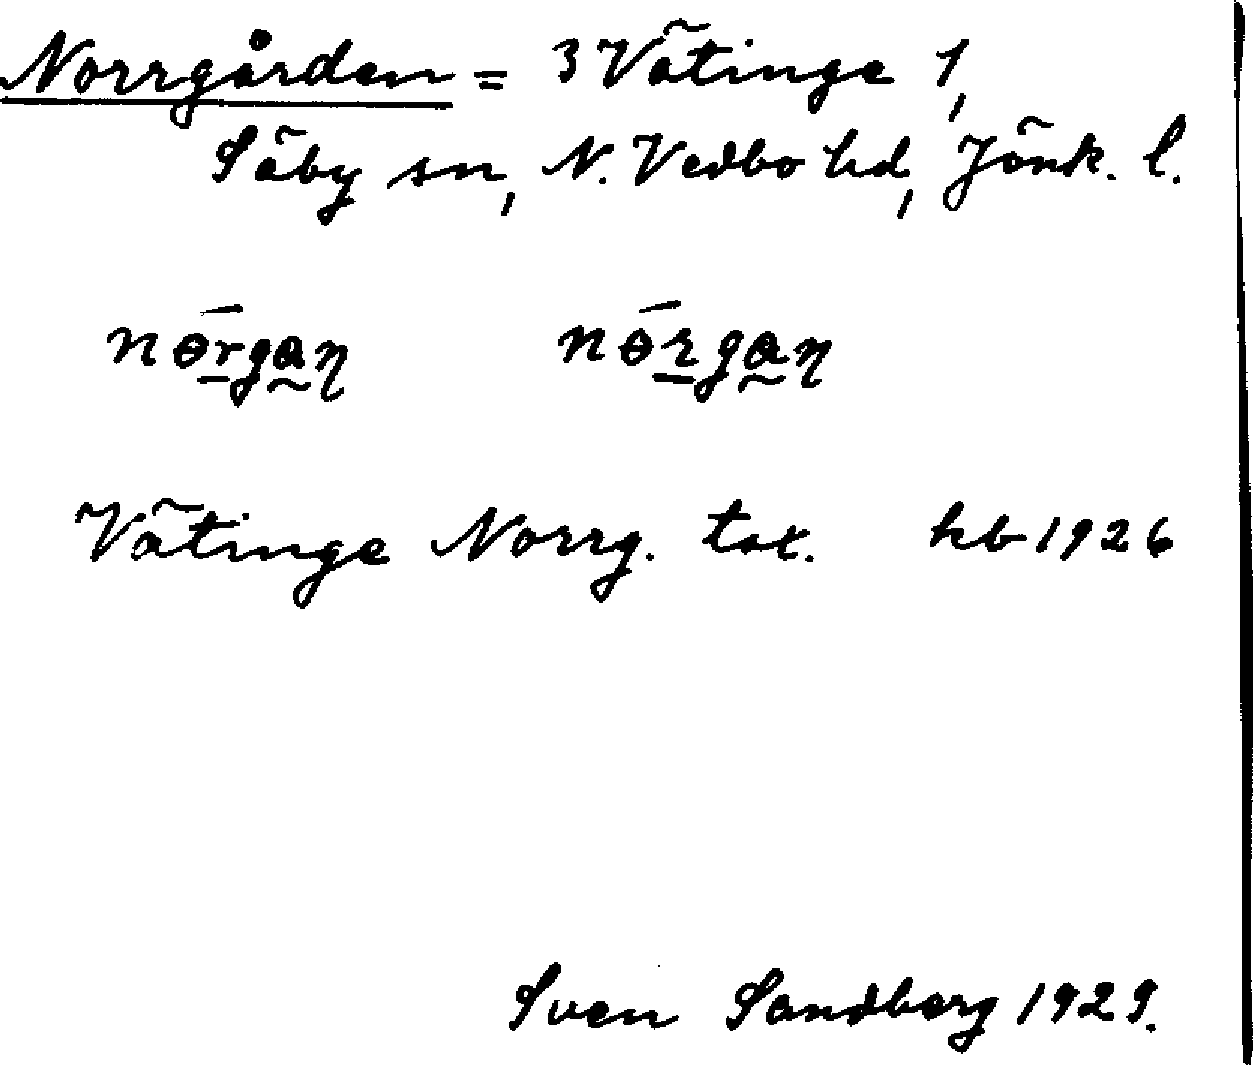 Norrgården = 3 Vätinge 1,
Säby sn, N. Vedbo hd, Jönk. l.
Vätinge Norrg. tax. hb 1926
Sven Sandberg 1929.